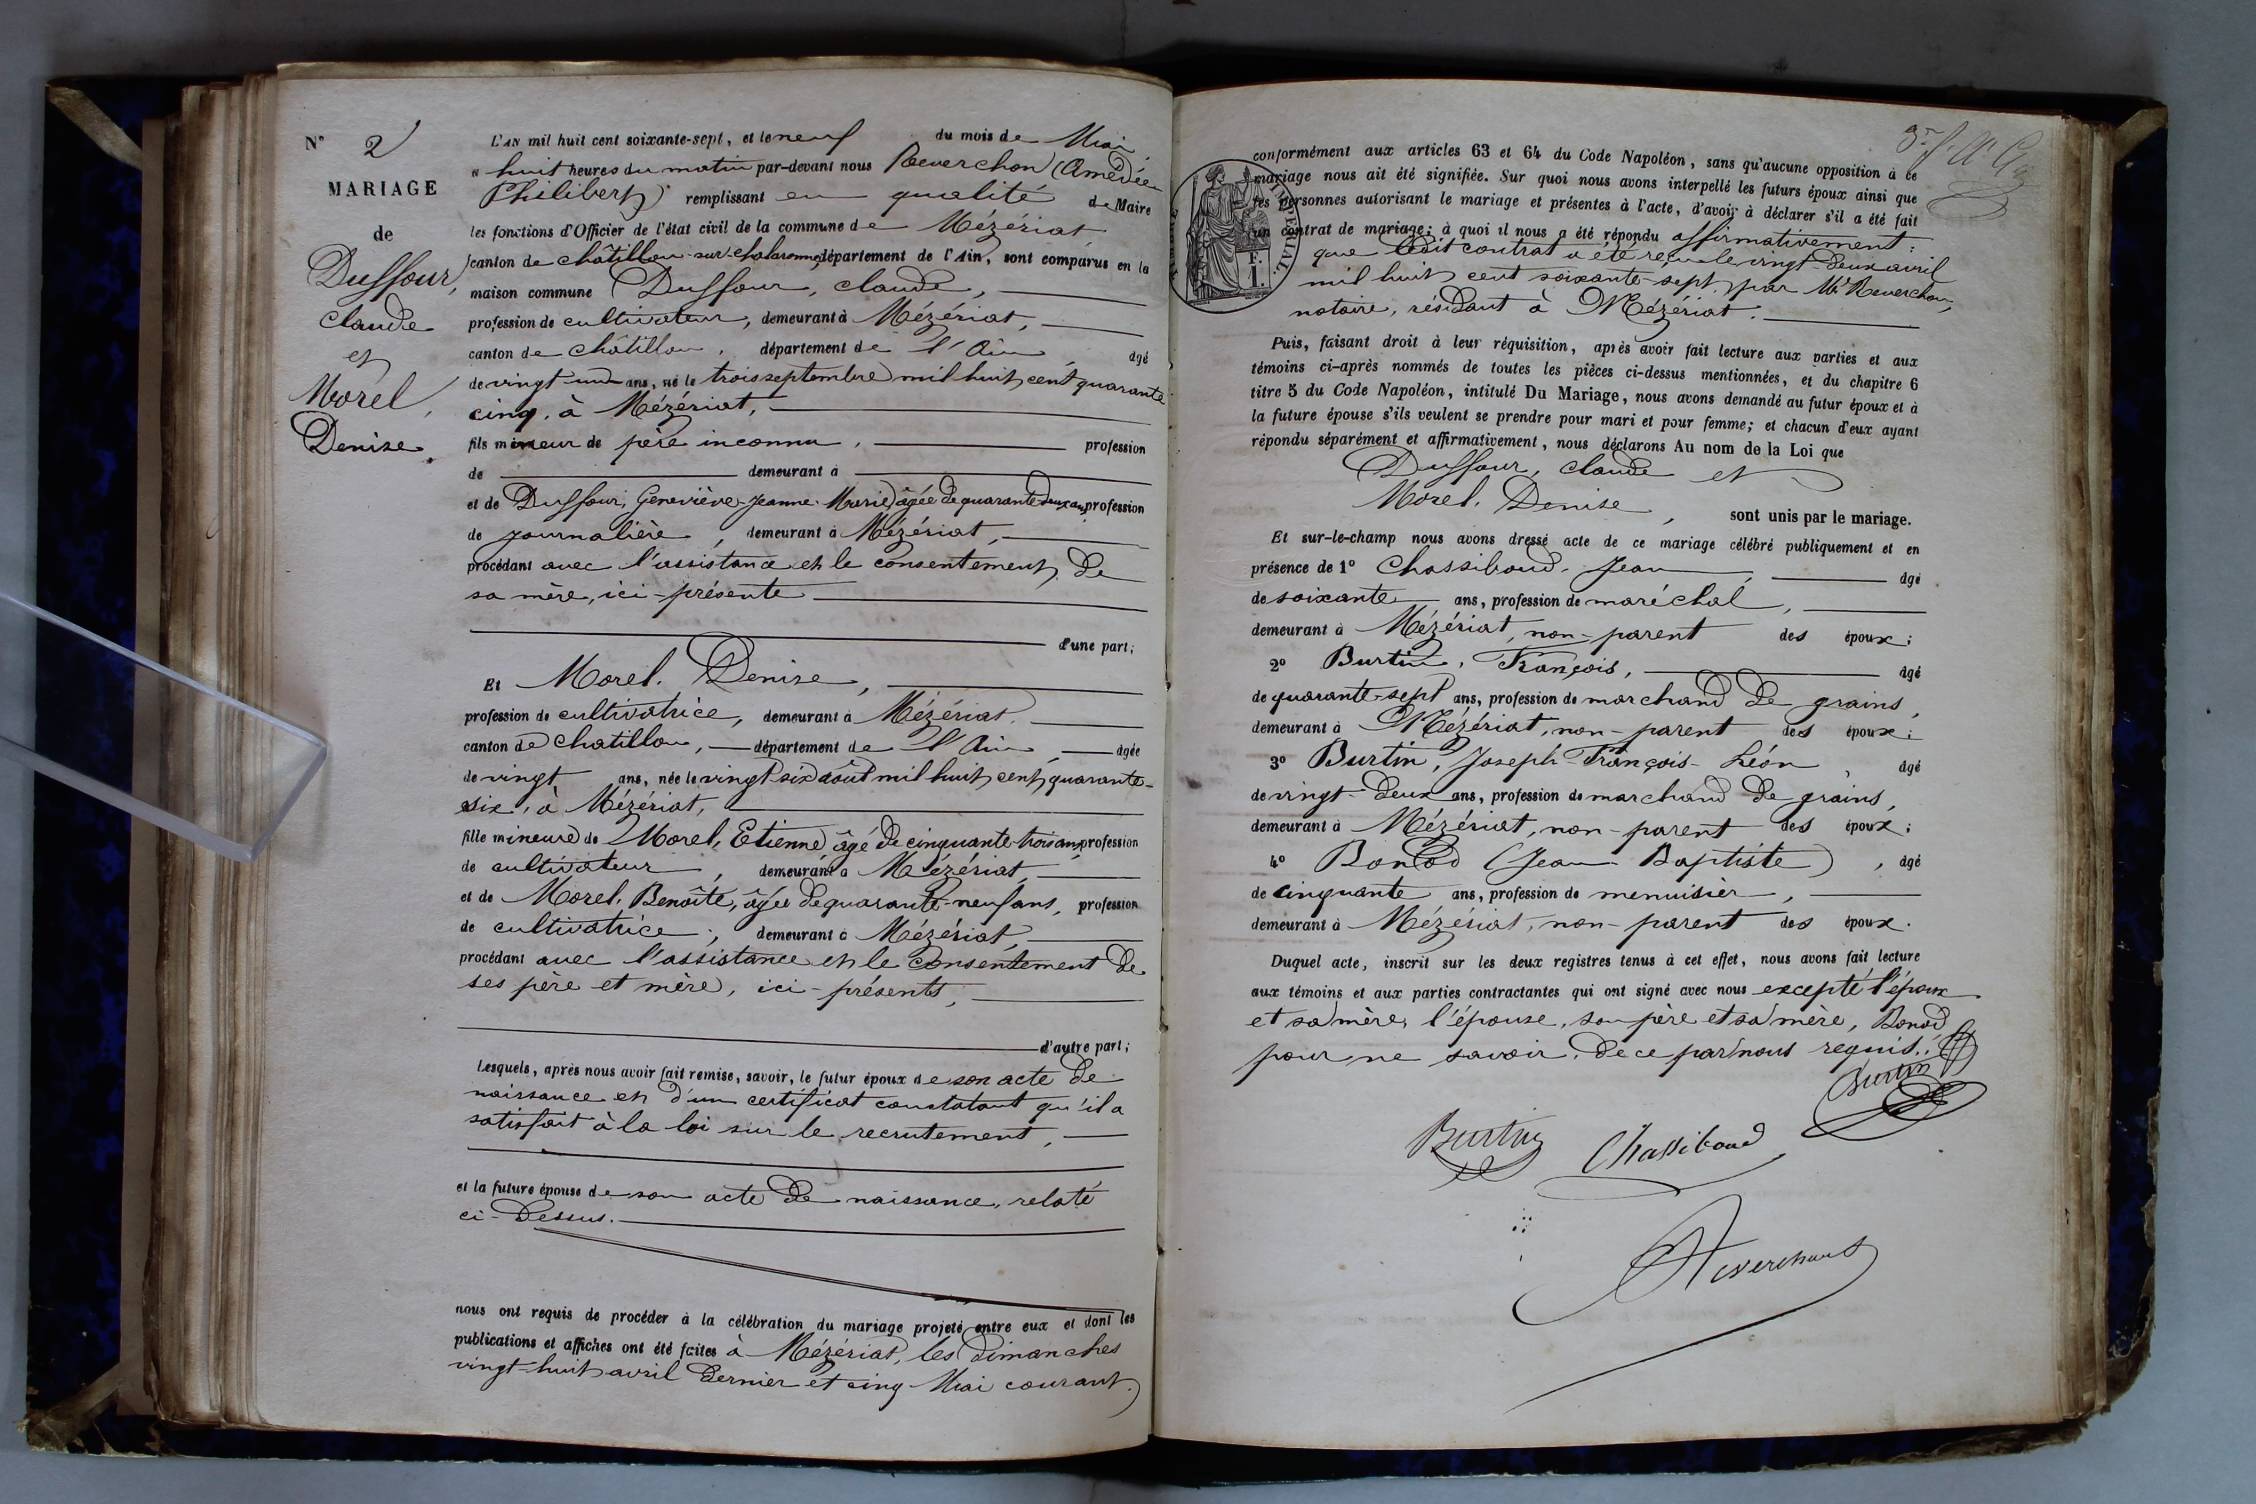 N° 2
MARIAGE
de
Duffour,
Claude
et
Morel,
Denise.
L'AN mil huit cent soixante-sept, et le neuf du mois de Mai
à huit heures du matin par-devant nous Reverchon (Amédée
Philibert) remplissant en qualité de Maire
les fonctions d'Officier de l'état civil de la commune de Mézériat
canton de châtillon-sur-chalaronne, département de l'Ain, sont comparus en la
maison commune Duffour, claude,
profession de cultivateur, demeurant à Mézériat,
canton de châtillon, département de l'Ain âgé
de vingt-un ans, né le trois septembre mil huit cent quarante
cinq, à Mézériat,
fils mineur de père inconnu, profession
de demeurant à
et de Duffour, Geneviève-Jeanne-Marie, âgée de quarante deux ans profession
de journalière, demeurant à Mézériat,
procédant avec l'assistance et le consentement de
sa mère, ici-présente
d'une part;
Et Morel, Denise,
profession de cultivatrice, demeurant à Mézériat,
canton de chatillon, département de l'Ain âgée
de vingt ans, née le vingt six août mil huit cent quarante-
six, à Mézériat,
fille mineure de Morel, Etienne, âgé de cinquante-trois ans, profession
de cultivateur, demeurant à Mézériat,
et de Morel, Benoîte, âgée de quarante-neuf ans, profession
de cultivatrice, demeurant à Mézériat,
procédant avec l'assistance et le consentement de
ses père et mère, ici-présents,
d'autre part;
Lesquels, après nous avoir fait remise, savoir, le futur époux de son acte de
naissance et d'un certificat constatant qu'il a
satisfait à la loi sur le recrutement,
et la future épouse de son acte de naissance, relaté
ci-dessus.
nous ont requis de procéder à la célébration du mariage projeté entre eux et dont les
publications et affiches ont été faites à Mézériat, les dimanches
vingt-huit avril dernier et cinq Mai courant,
conformément aux articles 63 et 64 du Code Napoléon, sans qu'aucune opposition à ce
mariage nous ait été signifiée. Sur quoi nous avons interpellé les futurs époux ainsi que
les personnes autorisant le mariage et présentes à l'acte, d'avoir à déclarer s'il a été fait
un contrat de mariage; à quoi il nous a été répondu affirmativement:
que ledit contrat a été reçu le vingt-deux avril
mil huit cent soixante-sept, par Me Reverchon,
notaire, résidant à Mézériat.
Puis, faisant droit à leur réquisition, après avoir fait lecture aux parties et aux
témoins ci-après nommés de toutes les pièces ci-dessus mentionnées, et du chapitre 6
titre 5 du Code Napoléon, intitulé Du Mariage, nous avons demandé au futur époux et à
la future épouse s'ils veulent se prendre pour mari et pour femme; et chacun d'eux ayant
répondu séparément et affirmativement, nous déclarons Au nom de la Loi que
Duffour, claude et
Morel, Denise, sont unis par le mariage.
Et sur-le-champ nous avons dressé acte de ce mariage célébré publiquement et en
présence de 1° Chassiboud, Jean, âgé
de soixante ans, profession de maréchal,
demeurant à Mézériat, non-parent des époux;
2° Burtin, François, âgé
de quarante-sept ans, profession de marchand de grains,
demeurant à Mézériat, non-parent des époux;
3° Burtin, Joseph François-Léon, âgé
de vingt-deux ans, profession de marchand de grains,
demeurant à Mézériat, non-parent des époux;
4° Bonod (Jean-Baptiste), âgé
de cinquante ans, profession de menuisier,
demeurant à Mézériat, non-parent des époux.
Duquel acte, inscrit sur les deux registres tenus à cet effet, nous avons fait lecture
aux témoins et aux parties contractantes qui ont signé avec nous excepté l'époux
et sa mère, l'épouse, son père et sa mère, Bonod
pour ne savoir, de ce par nous requis.
Burtin
Burtin Chassiboud
Reverchon